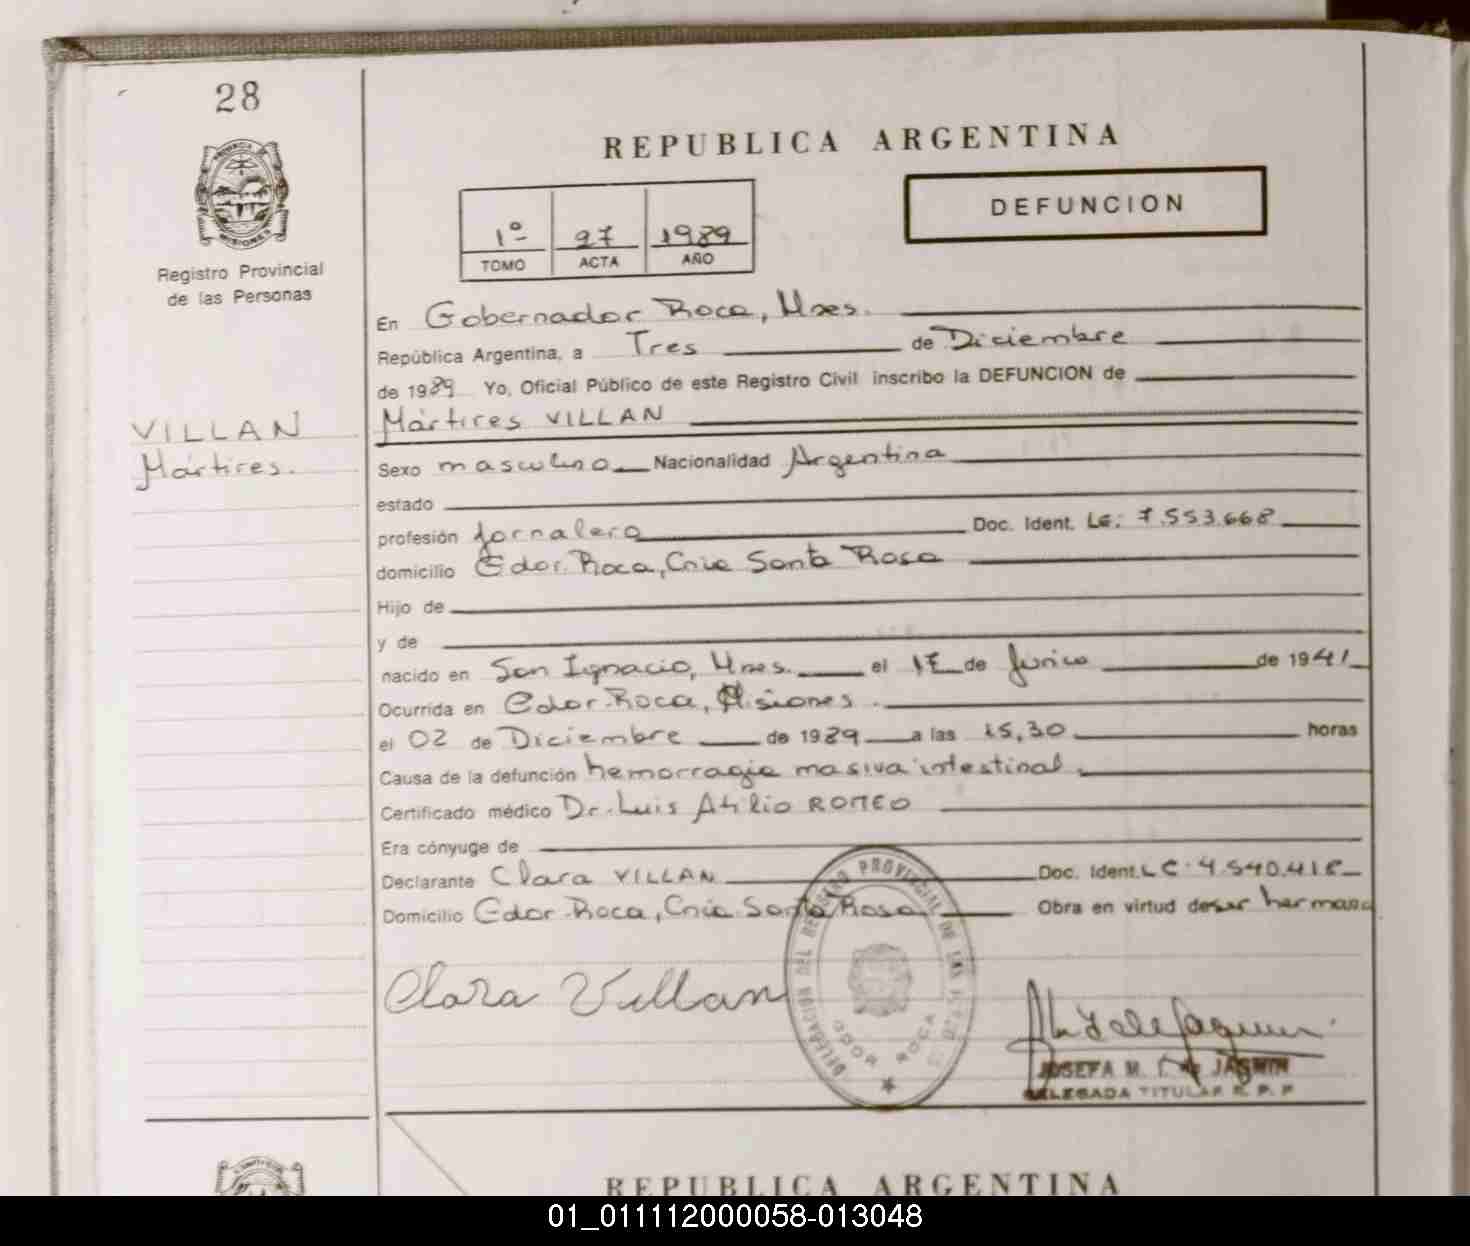 28
PROVINCIA DE
MISIONES
Registro Provincial
de las Personas
REPUBLICA ARGENTINA
DEFUNCION
1º 27 1989
TOMO ACTA AÑO
En Gobernador Roca, Mnes.
República Argentina, a Tres de Diciembre
de 1989 Yo, Oficial Público de este Registro Civil inscribo la DEFUNCION de
VILLAN
Mártires.
Mártires VILLAN
Sexo masculino Nacionalidad Argentina
estado
profesión Jornalero Doc. Ident. LE: 7.553.668
domicilio Gdor. Roca, Cnia Santa Rosa
Hijo de
y de
nacido en San Ignacio, Mnes. el 17 de Junio de 1941
Ocurrida en Gdor. Roca, Misiones.
el 02 de Diciembre de 1989 a las 15,30 horas
Causa de la defunción hemorragia masiva intestinal.
Certificado médico Dr. Luis Atilio ROMEO
Era cónyuge de
Declarante Clara VILLAN Doc. Ident. LC. 4.540.418
Domicilio Gdor. Roca, Cnia. Santa Rosa Obra en virtud de ser hermana
Clara Villan
DELEGACION DEL REGISTRO PROVINCIAL DE LAS
GDOR ROCA
JOSEFA M. JASMIN
DELEGADA TITULAR R. P. P
REPUBLICA ARGENTINA
01_011112000058-013048